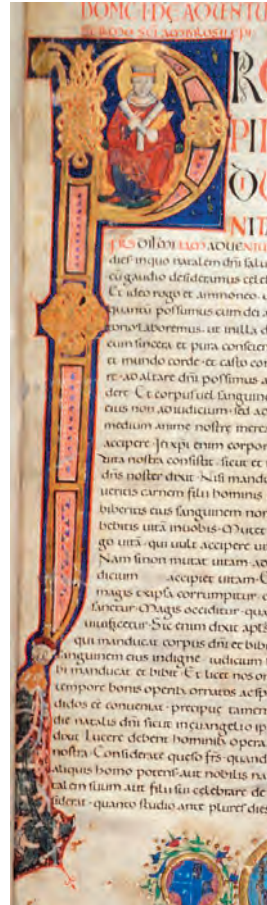 DOMC·I·DE ADUENTU
SERMO SCI AMBROSII EPI
PRO
PI
NIT
FRS dilmi iam adueniu
dies in quo natalem dni salu
cu gaudio desideramus cele
Et ideo rogo et ammoneo·
quantu possumus cum dei a
laboremus· ut in illa d
cum sincera et pura conscien
et mundo corde· et casto cor
ad altare dni possimus a
dere· Et corpus uel sanguine
eius non ad iudicium· sed ad
medium anime nostre merea
accipere· In xpi enim corpor
uita nostra consistit· sicut et
dns noster dixit· Nisi mandu
ueritis carnem filii hominis
biberitis eius sanguinem non
bebitis uita in uobis· Mutet
go uita· qui uult accipere ui
Nam si non mutat uitam· ad
dicium accipiet uitam·
magis ex ipsa corrumpitur·
sanetur· Magis occiditur· qua
uiuificetur· Sic enim dixit apls
qui manducat corpus dni et bibi
sanguinem eius indigne iudicium
bi manducat et bibit· Et licet nos om
tempore bonis operib; ornatos
didos ee conueniat· precipue tamen
die natalis dni sicut in euangelio ip
dixit Lucere debent hominib; opera
nostra· Considerate queso frs· quand
aliquis homo potens· aut nobilis na
talem suum aut filii sui celebrare de
siderat· quanto studio ante plures dies